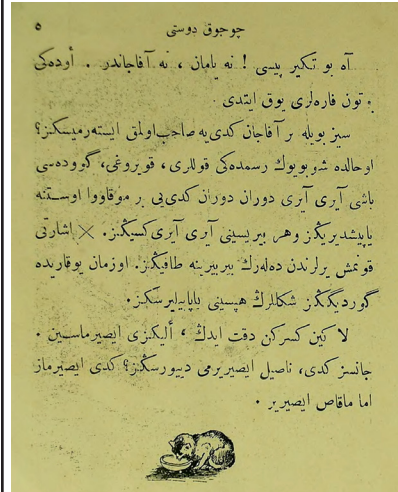 چوجوق دوستی
٥
آه بو تكیر پیسی ! نه یامان ، نه آفاجاندر . أوده‌كی
بوتون فاره‌لری یوق ایتدی .
سیز بویله بر آفاجان كدی‌یه صاحب اولمق ایسته‌رمیسكز؟
اوحالده شو بویوك رسمده‌كی قوللری ، قویروغی، گووده‌سی
باشی آیری آیری دوران دوران كدی‌یی بر موقاووا اوستنه
یاپیشدیریكز وهر بیریسینی آیری آیری كسیكز. × اشارتی
قونمش یرلرندن ده‌له‌رك بیربیرینه طاقیكز. اوزمان یوقاریده
گوردیگكز شكللرك هپسینی یاپابیلیرسكز.
لاكین كسركن دقت ایدك ، ألیكزی ایصیرماسین .
جانسز كدی، ناصیل ایصیریرمی دییورسكز؟ كدی ایصیرماز
اما ماقاص ایصیریر .